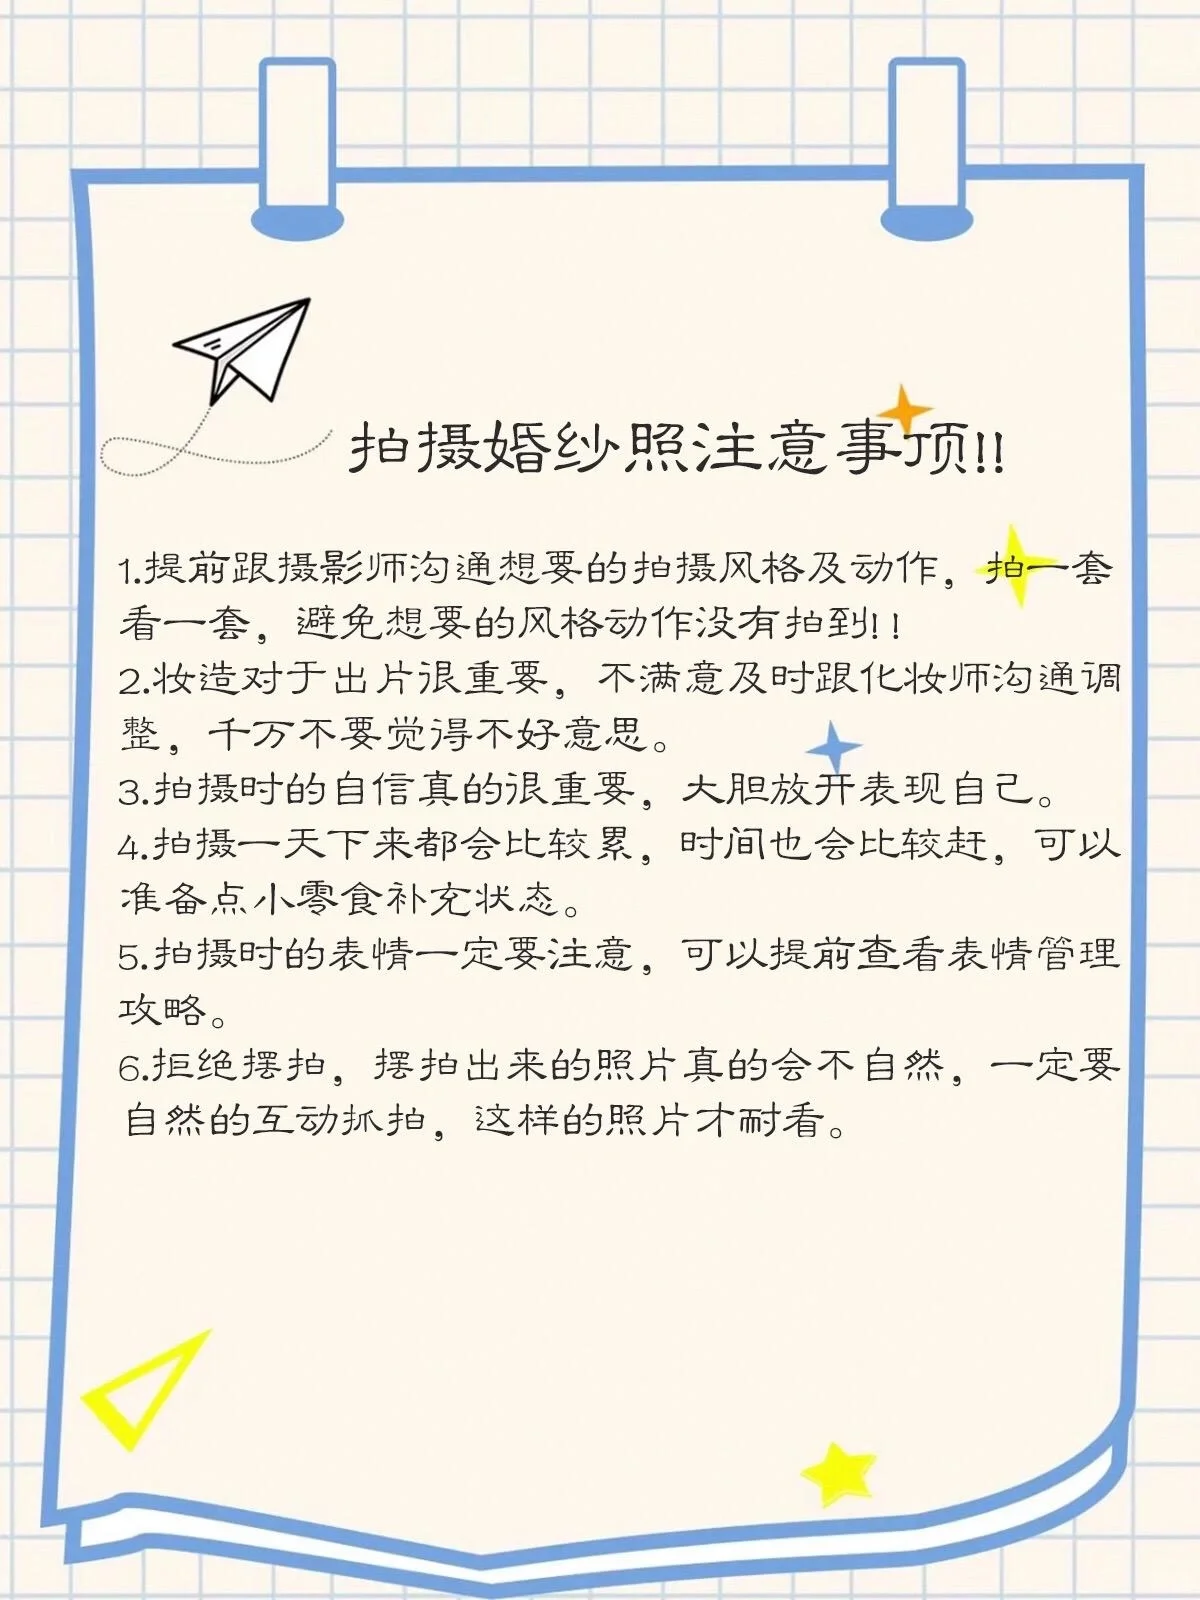 拍摄婚纱照注意事项!!
1.提前跟摄影师沟通想要的拍摄风格及动作，拍一套
看一套，避免想要的风格动作没有拍到!!
2.妆造对于出片很重要，不满意及时跟化妆师沟通调
整，千万不要觉得不好意思。
3.拍摄时的自信真的很重要，大胆放开表现自己。
4.拍摄一天下来都会比较累，时间也会比较赶，可以
准备点小零食补充状态。
5.拍摄时的表情一定要注意，可以提前查看表情管理
攻略。
6.拒绝摆拍，摆拍出来的照片真的会不自然，一定要
自然的互动抓拍，这样的照片才耐看。